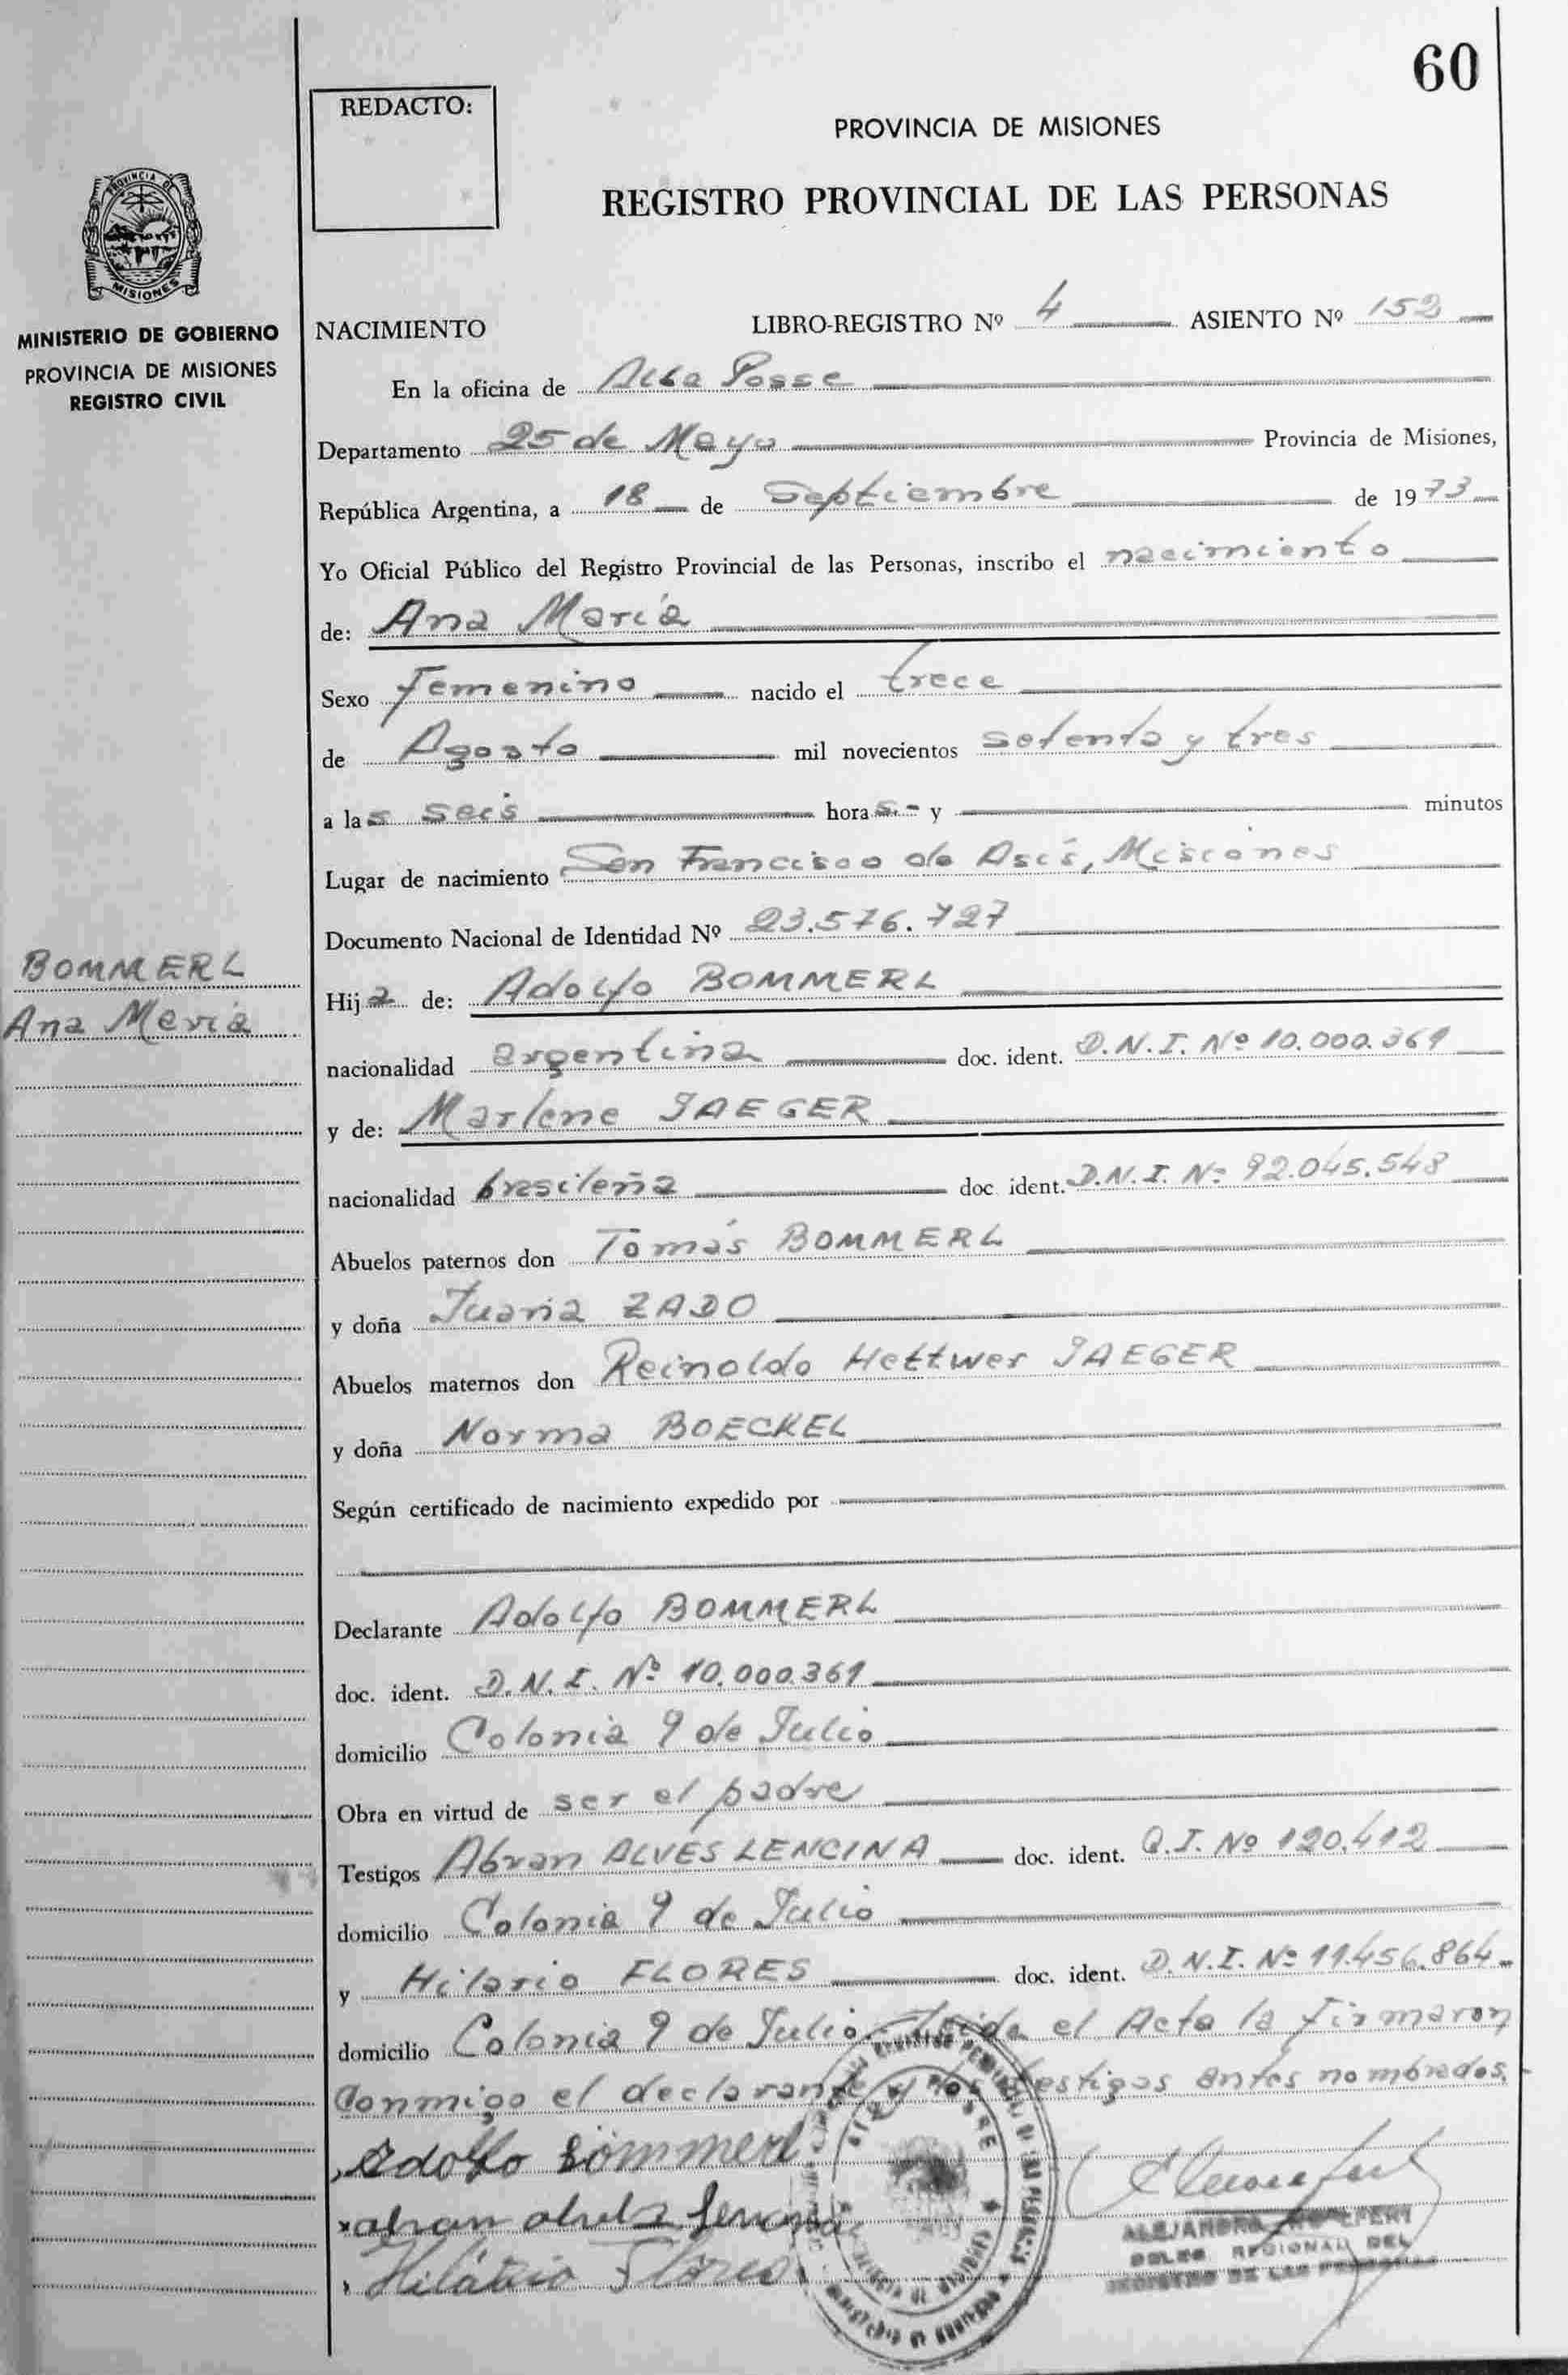 60
REDACTO:
PROVINCIA DE MISIONES
REGISTRO PROVINCIAL DE LAS PERSONAS
PROVINCIA DE
MISIONES
MINISTERIO DE GOBIERNO
PROVINCIA DE MISIONES
REGISTRO CIVIL
NACIMIENTO LIBRO-REGISTRO Nº 4 ASIENTO Nº 152
En la oficina de Alba Posse
Departamento 25 de Mayo Provincia de Misiones,
República Argentina, a 18 de Septiembre de 1973
Yo Oficial Público del Registro Provincial de las Personas, inscribo el nacimiento
de: Ana María
Sexo femenino nacido el trece
de Agosto mil novecientos setenta y tres
a las seis horas.- y minutos
Lugar de nacimiento San Francisco de Asís, Misiones
Documento Nacional de Identidad Nº 23.576.727
BOMMERL
Ana María
Hija de: Adolfo BOMMERL
nacionalidad argentina doc. ident. D.N.I. Nº 10.000.361
y de: Marlene JAEGER
nacionalidad brasileña doc ident. D.N.I. Nº 92.045.548
Abuelos paternos don Tomás BOMMERL
y doña Juana ZADO
Abuelos maternos don Reinoldo Hettwer JAEGER
y doña Norma BOECKEL
Según certificado de nacimiento expedido por
Declarante Adolfo BOMMERL
doc. ident. D.N.I. Nº 10.000.361
domicilio Colonia 9 de Julio
Obra en virtud de ser el padre
Testigos Abran ALVES LENCINA doc. ident. C.I. Nº 120.412
domicilio Colonia 9 de Julio
y Hilario FLORES doc. ident. D.N.I. Nº 11.456.864
domicilio Colonia 9 de Julio.- Leida el Acta la firmaron
Conmigo el declarante y los testigos antes nombrados.
Adolfo Bommerl
Hilário Flores
REGIONAL DEL
REGISTRO DE LAS PERSONAS